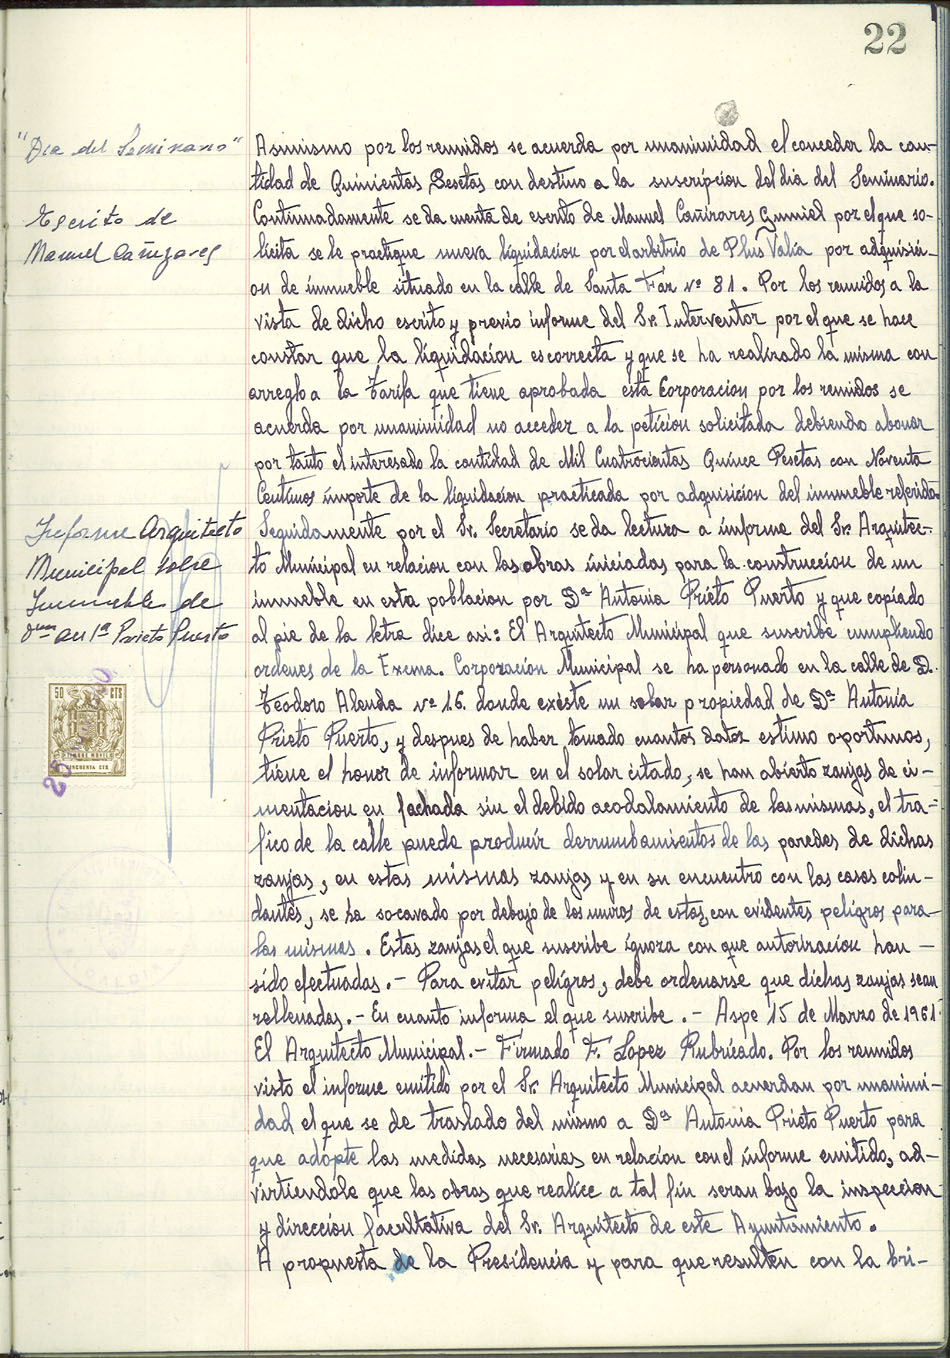 22
"Dia del Seminario"
Asimismo por los reunidos se acuerda por unanimidad el conceder la can-
tidad de Quinientas Pesetas con destino a la suscripcion del dia del Seminario.
Escrito de
Manuel Cañizares
Continuadamente se da cuenta de escrito de Manuel Cañizares Gumiel por el que so-
licita se le practique nueva liquidacion por el arbitrio de Plus Valia por adquisici-
on de inmueble situado en la calle de Santa Faz nº 81. Por los reunidos a la
vista de dicho escrito y previo informe del Sr. Interventor por el que se hace
constar que la liquidacion es correcta y que se ha realizado la misma con
arreglo a la Tarifa que tiene aprobada esta Corporacion por los reunidos se
acuerda por unanimidad no acceder a la peticion solicitada debiendo abonar
por tanto el interesado la cantidad de Mil Cuatrocientas Quince Pesetas con Noventa
Centimos importe de la liquidacion practicada por adquisicion del inmueble referido.
Informe Arquitecto
Municipal sobre
Inmueble de
Prieto Puerto
Seguidamente por el Sr. Secretario se da lectura a informe del Sr. Arquitec-
to Municipal en relacion con las obras iniciadas para la construccion de un
inmueble en esta poblacion por Dª Antonia Prieto Puerto y que copiado
al pie de la letra dice asi: El Arquitecto Municipal que suscribe cumpliendo
ordenes de la Excma. Corporacion Municipal se ha personado en la calle de D.
Teodoro Alenda nº 16. donde existe un solar propiedad de Dª Antonia
Prieto Puerto, y despues de haber tomado cuantos datos estimo oportunos,
tiene el honor de informar en el solar citado, se han abierto zanjas de ci-
mentacion en fachada sin el debido acodalamiento de las mismas, el tra-
fico de la calle puede producir derrumbamientos de las paredes de dichas
zanjas, en estas mismas zanjas y en su encuentro con las casas colin-
dantes, se ha socavado por debajo de los muros de estas, con evidentes peligros para
las mismas. Estas zanjas el que suscribe ignora con que autorizacion han —
sido efectuadas. - Para evitar peligros, debe ordenarse que dichas zanjas sean
rellenadas. - En cuanto informa el que suscribe. - Aspe 15 de Marzo de 1961.
El Arquitecto Municipal. - Firmado F. Lopez Rubricado. Por los reunidos
visto el informe emitido por el Sr. Arquitecto Municipal acuerdan por unanimi-
dad el que se de traslado del mismo a Dª Antonia Prieto Puerto para
que adopte las medidas necesarias en relacion con el informe emitido, ad-
virtiendole que las obras que realice a tal fin seran bajo la inspeccion
y direccion facultativa del Sr. Arquitecto de este Ayuntamiento.
A propuesta de la Presidencia y para que resulten con la bri-
50 CTS
CINCUENTA CTS